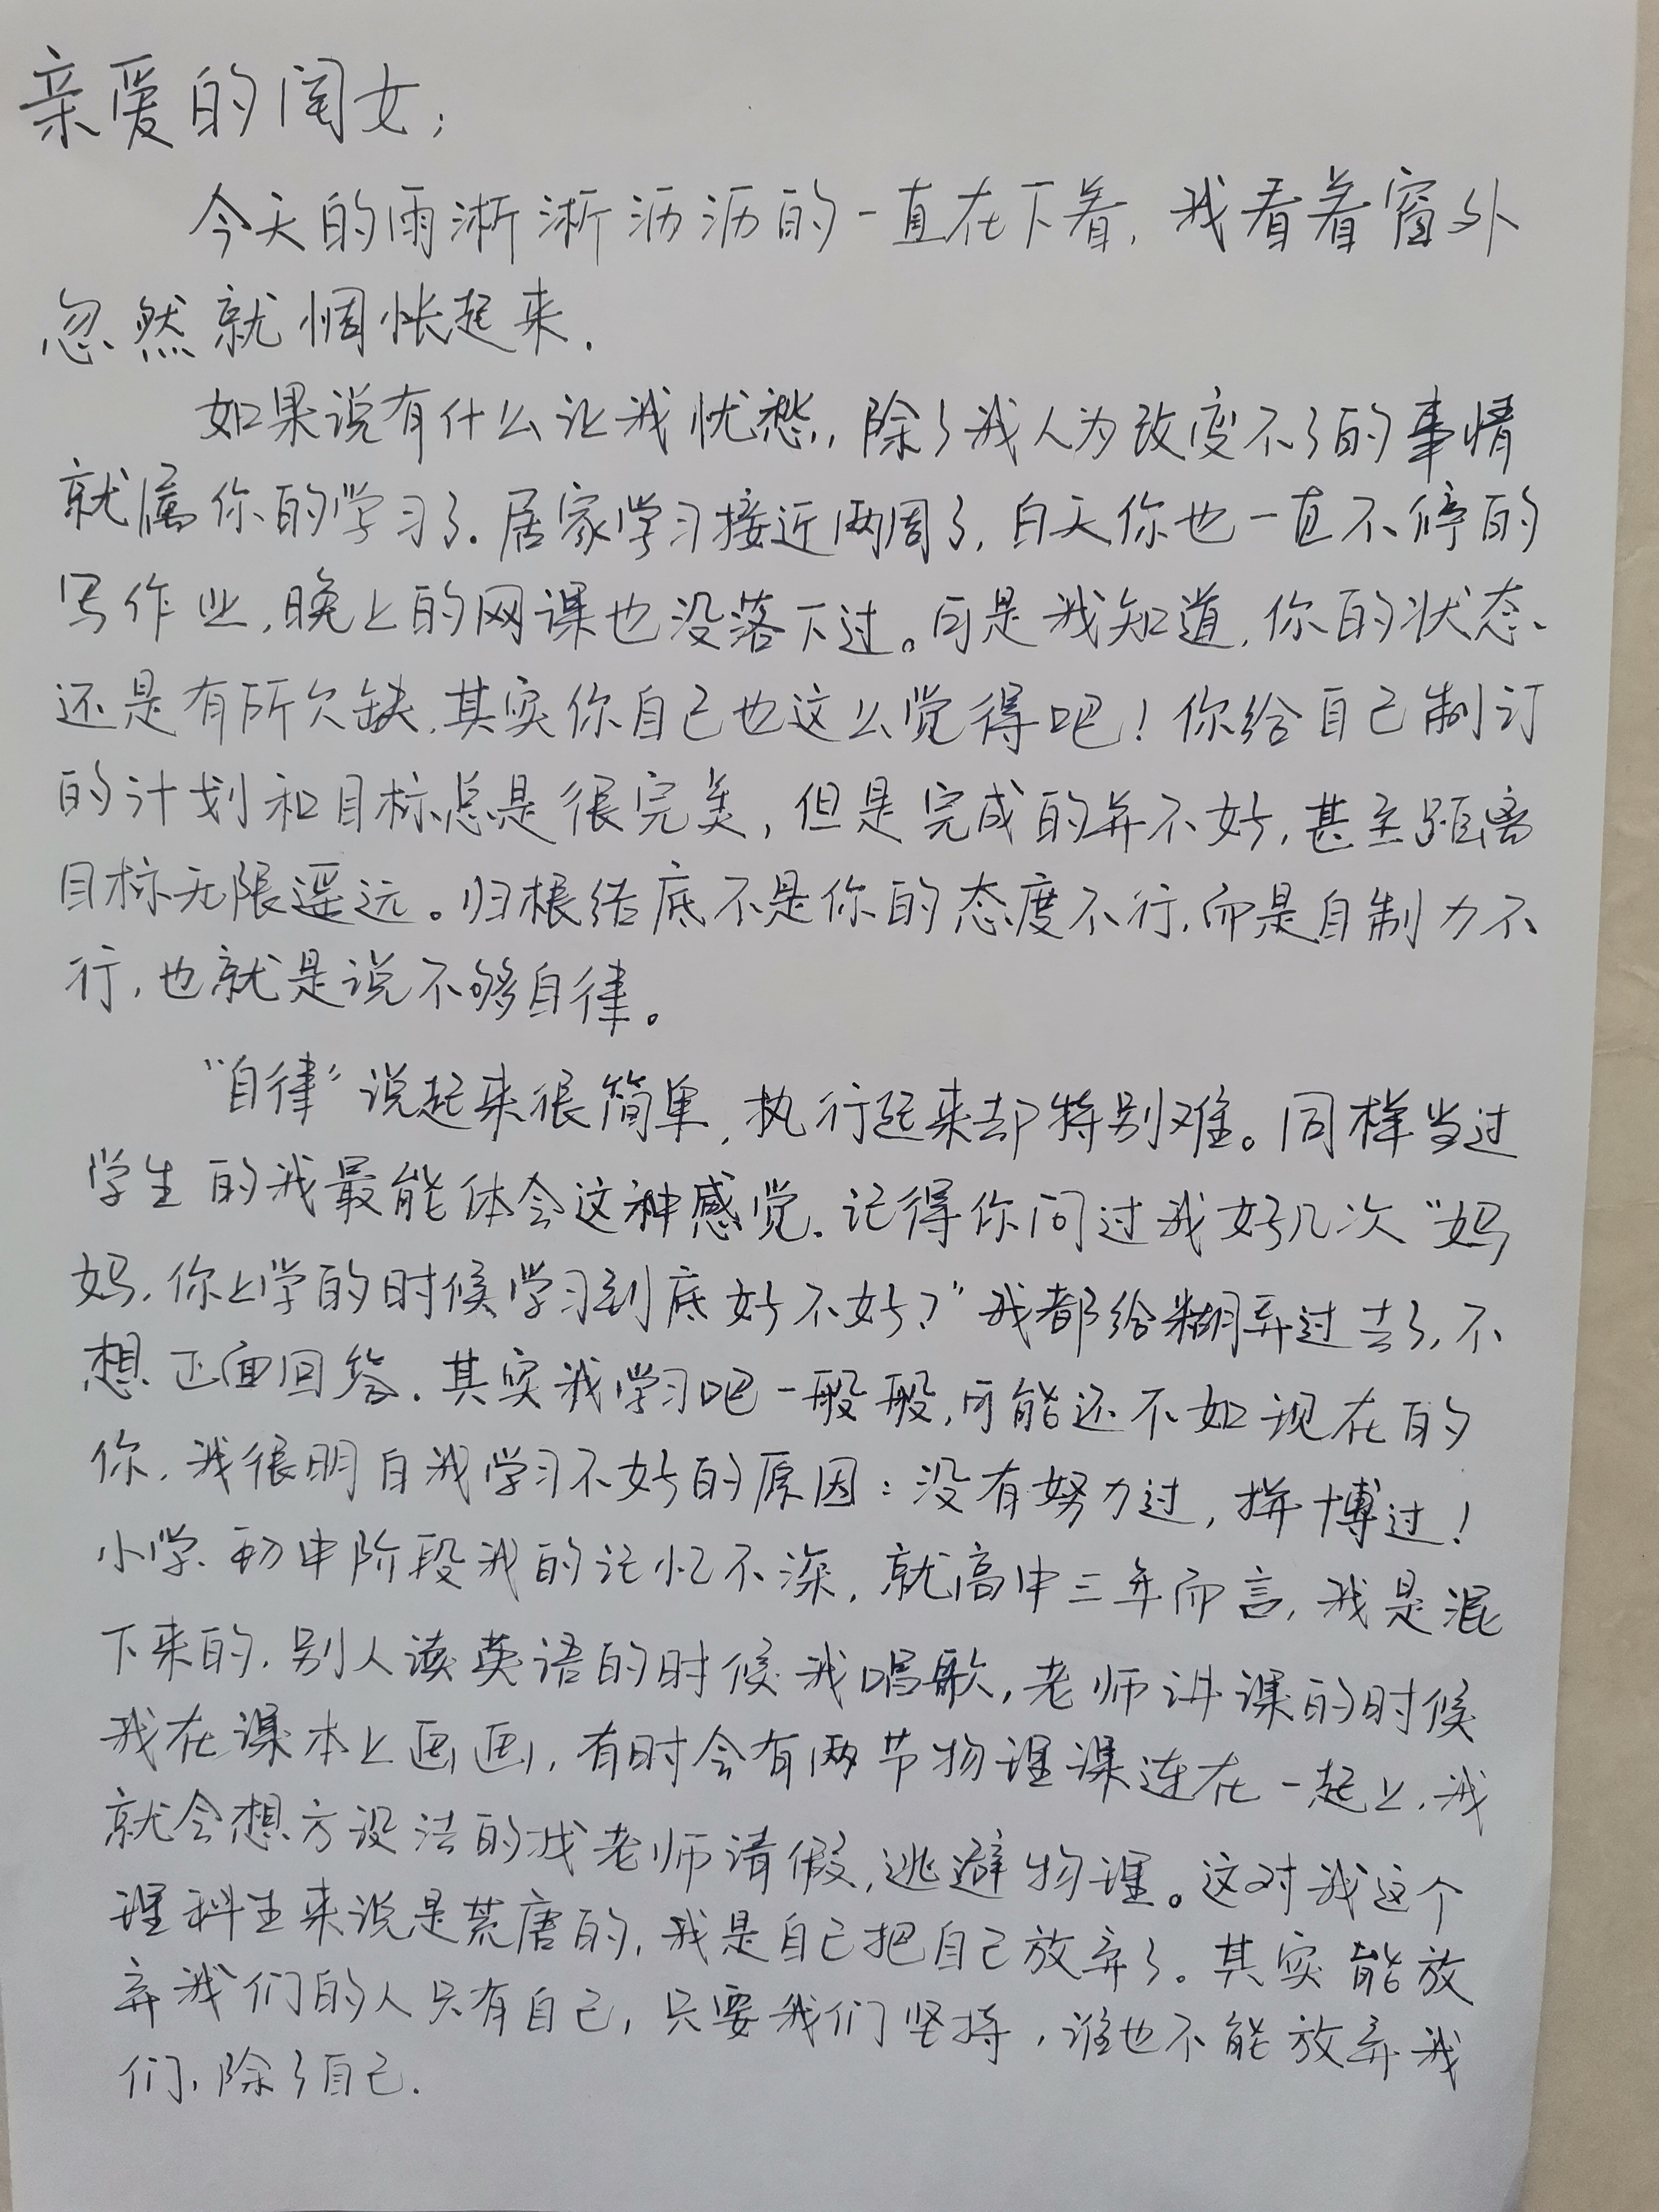 亲爱的闺女:
今天的雨淅淅沥沥的一直在下着,我看着窗外
忽然就惆怅起来.
如果说有什么让我忧愁,除了我人为改变不了的事情
就属你的学习了.居家学习接近两周了,白天你也一直不停的
写作业,晚上的网课也没落下过。可是我知道,你的状态
还是有所欠缺.其实你自己也这么觉得吧!你给自己制订
的计划和目标总是很完美,但是完成的并不好,甚至距离
目标无限遥远。归根结底不是你的态度不行,而是自制力不
行,也就是说不够自律。
“自律”说起来很简单,执行起来却特别难。同样当过
学生的我最能体会这种感觉.记得你问过我好几次“妈
妈,你上学的时候学习到底好不好?”我都给糊弄过去了,不
想正面回答.其实我学习吧一般般,可能还不如现在的
你.我很明白我学习不好的原因:没有努力过,拼博过!
小学、初中阶段我的记忆不深,就高中三年而言,我是混
下来的.别人读英语的时候我唱歌,老师讲课的时候
我在课本上画画,有时会有两节物理课连在一起上,我
就会想方设法的找老师请假,逃避物理。这对我这个
理科生来说是荒唐的,我是自己把自己放弃了。其实能放
弃我们的人只有自己,只要我们坚持,谁也不能放弃我
们,除了自己.